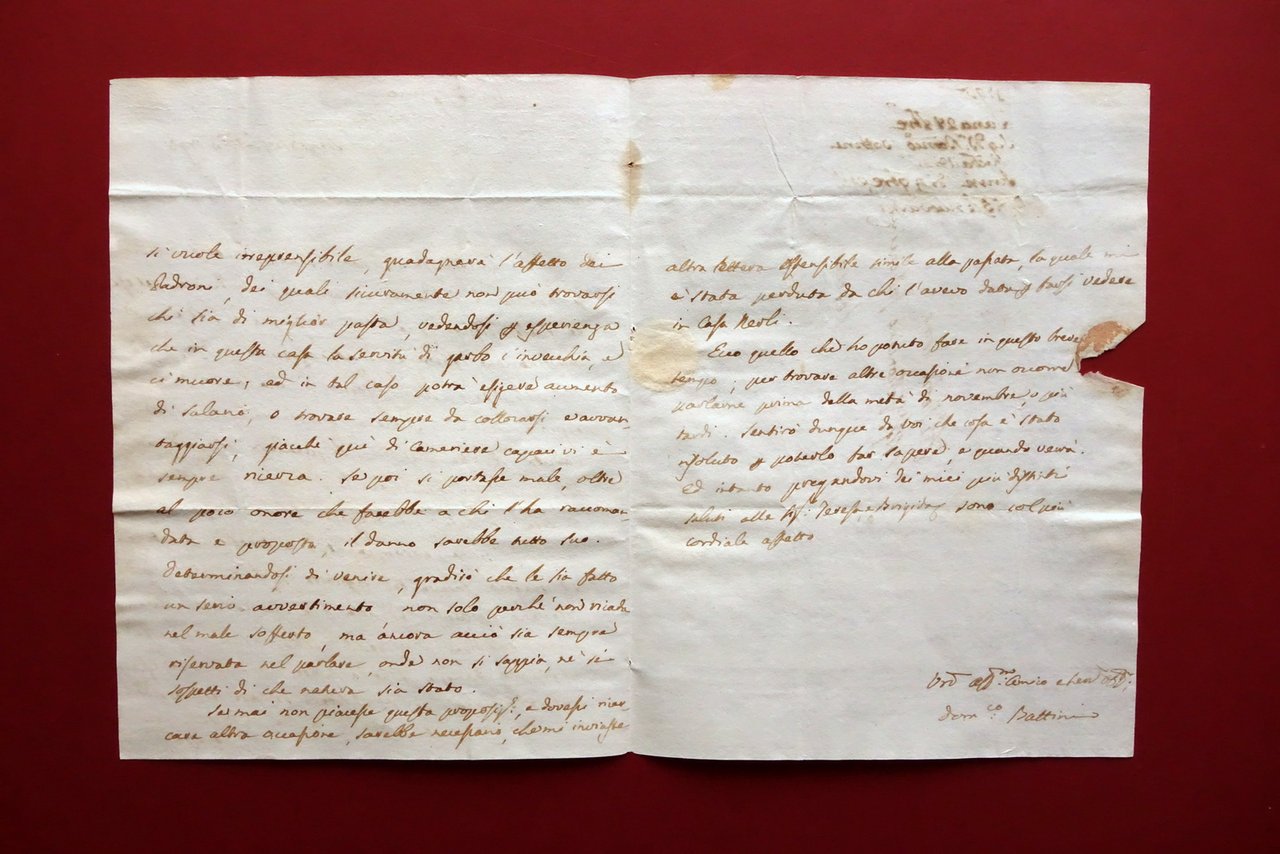 si vuole irreprensibile, guadagnerà l'affetto dei
Padroni, dei quali sicuramente non può trovarsi
chi sia di miglior pasta, vedendosi p esperienza
che in questa casa la servitù di garbo c'invecchia, e
ci muore; ed in tal caso potrà esigere aumento
di salario, o trovare sempre da collocarsi e avvan
taggiarsi, giacchè quì di Cameriere capaci vi è
sempre ricerca. Se poi si portasse male, oltre
al poco onore che farebbe a chi l'ha raccoman
data e proposta, il danno sarebbe tutto suo.
Determinandosi di venire, gradirò che le sia fatto
un serio avvertimento non solo perchè non ricada
nel male sofferto, ma ancora acciò sia sempre
riservata nel parlare, onde non si sappia, nè si
sospetti di che natura sia stato.
Se mai non piacesse questa proposiz:, e dovessi ricer
care altra occasione, sarebbe necessario, che mi inviaste
altra lettera ostensibile simile alla passata, la quale mi
è stata perduta da chi l'avevo data p farsi vedere
in Casa Nerli.
Ecco quello che ho potuto fare in questo breve
tempo; per trovare altre occasione non occorre
parlarne prima della metà di novembre o più
tardi. Sentirò dunque da voi che cosa è stato
risoluto p poterlo far sapere, e quando verrà.
Ed intanto pregandovi dei miei più distinti
saluti alle Teresa e Brigida sono col più
cordiale affetto
Amico e
Dom.co Battini